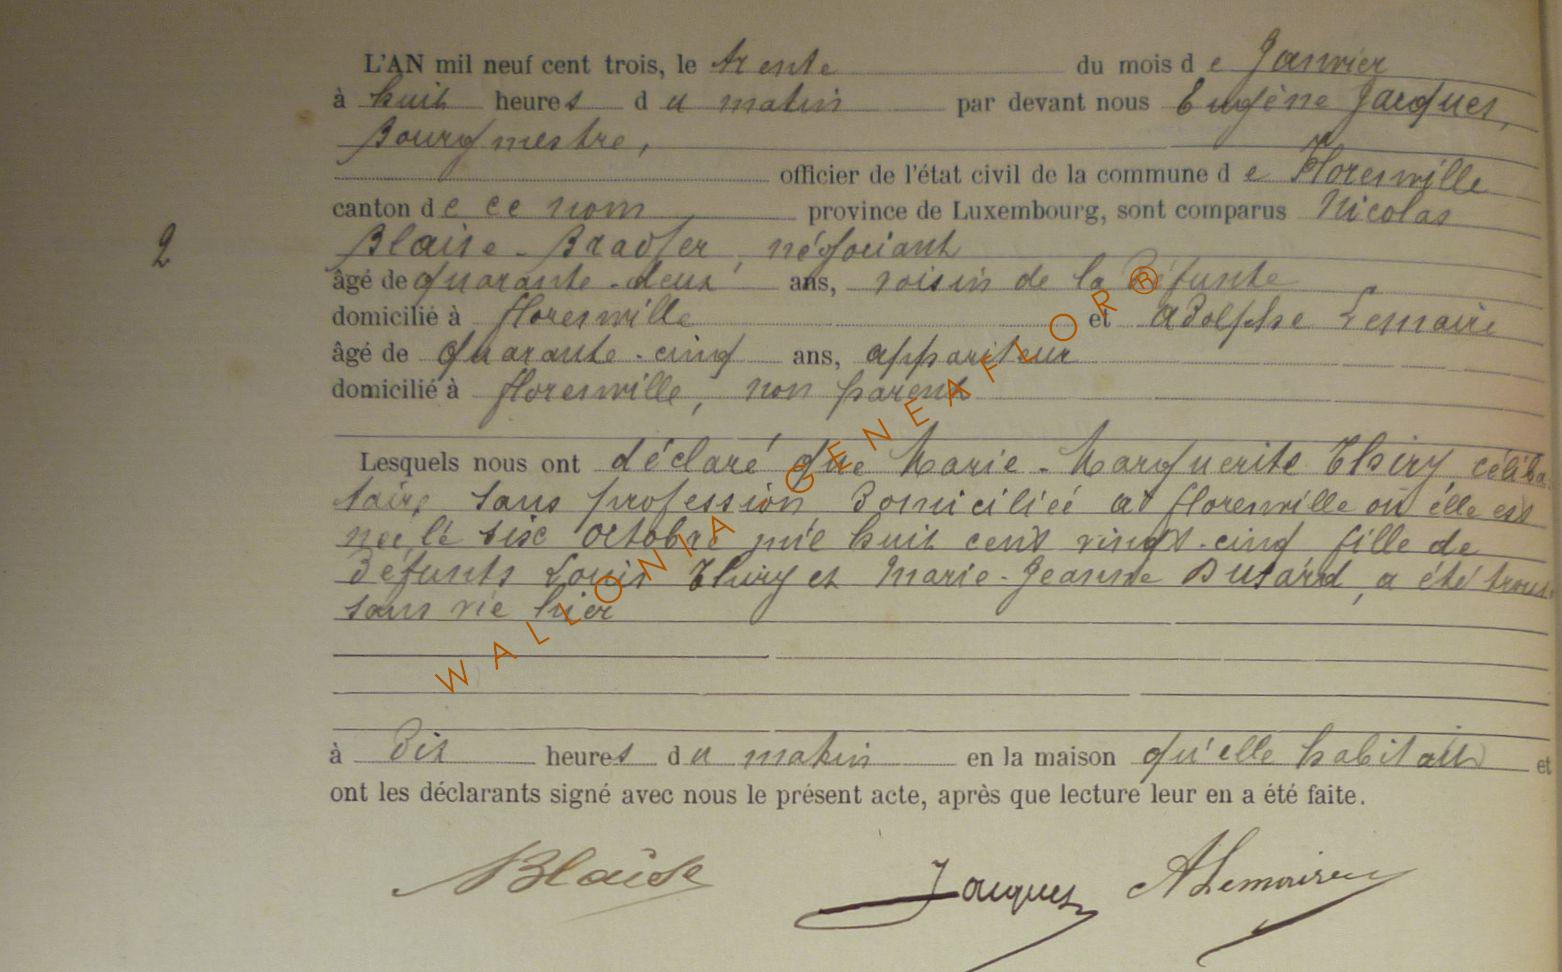 L'AN mil neuf cent trois, le trente du mois de Janvier
à huit heures du matin par devant nous Eugène Jacques,
Bourgmestre,
officier de l'état civil de la commune de Florenville
canton de ce nom province de Luxembourg, sont comparus Nicolas
2
Blaise - Bradfer, négociant
âgé de quarante-deux ans, voisin de la Défunte
domicilié à florenville et Adolphe Lemaire
âgé de quarante-cinq ans, appariteur
domicilié à florenville, non parents
Lesquels nous ont déclaré que Marie-Marguerite Thiry, céliba
taire sans profession Domiciliée à florenville où elle est
née le six octobre mil huit cent vingt-cinq fille de
Défunts Louis Thiry et Marie-Jeanne Dusard, a été trouv
sans vie hier
à Dix heures du matin en la maison qu'elle habitait et
ont les déclarants signé avec nous le présent acte, après que lecture leur en a été faite.
NBlaise Jacques ALemaire
WALLONIA GENEAFLOR®